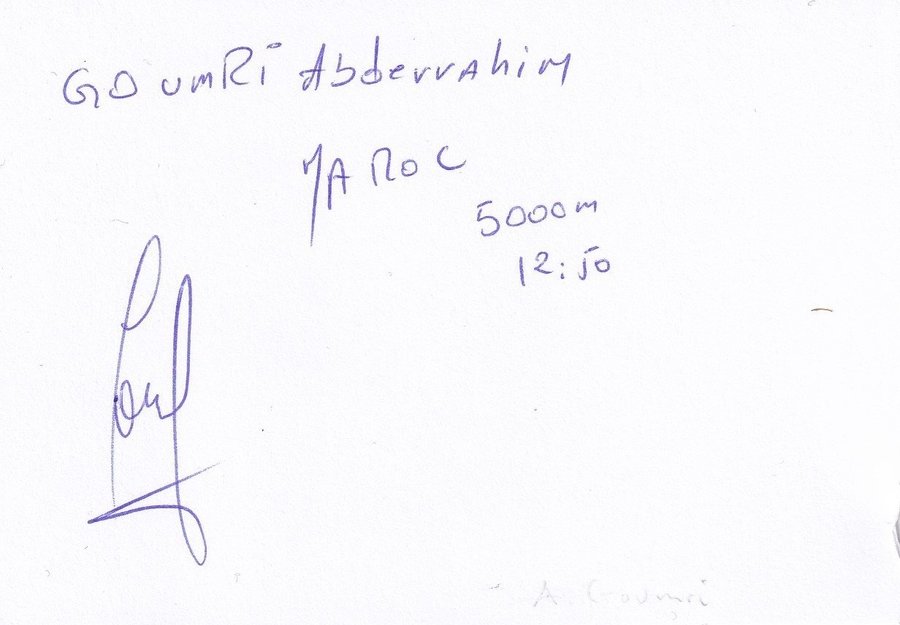 GOUMRi Abderrahim
MAROC
5000m
12:50
A. Goumri